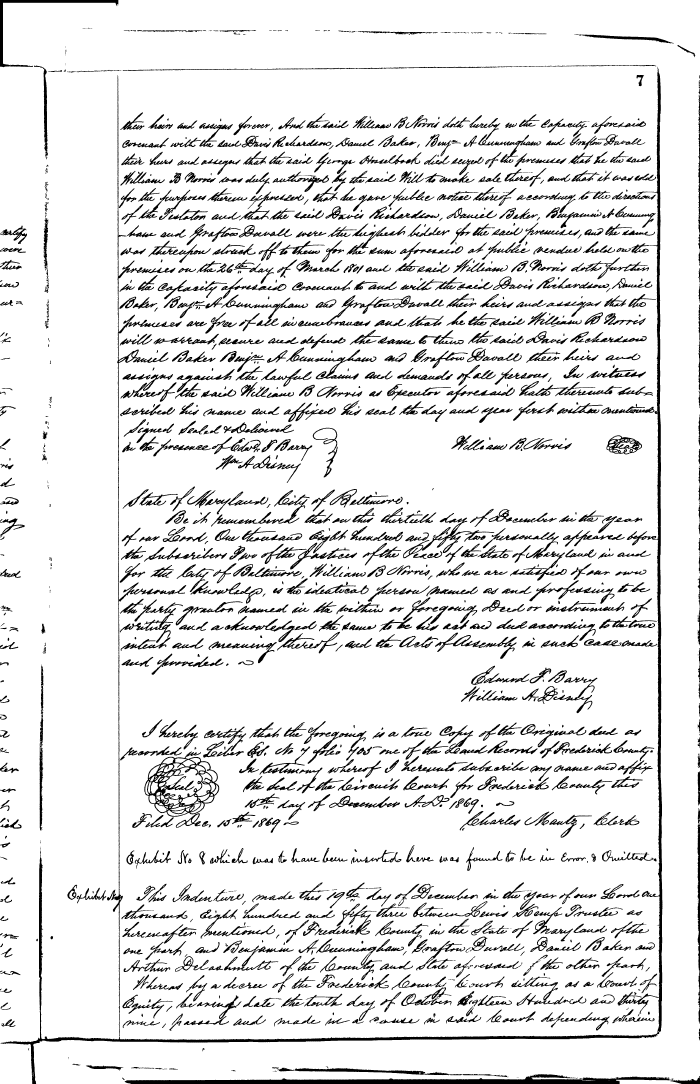 7
their heirs and assigns forever, And the said William B Norris doth hereby in the Capacity aforesaid
covenant with the said Davis Richardson, Daniel Baker, Benjn A Cunningham and Grafton Duvall
their heirs and assigns that the said George Houselbock died seized of the premises that he the said
William B Norris was duly authorized by the said Will to make sale thereof, and that it was sold
for the purposes therein expressed, that he gave public notice thereof according to the directions
of the Testator and that the said Davis Richardson, Daniel Baker, Benjamin A Cunning
-ham and Grafton Duvall were the highest bidder for the said premises, and the same
was thereupon struck off to them for the sum aforesaid at public vendue held on the
premises on the 26th day of March 1801 and the said William B. Norris doth further
in the capacity aforesaid covenant to and with the said Davis Richardson, Daniel
Baker, Benjn. A. Cunningham and Grafton Duvall their heirs and assigns that the
premises are free of all incumbrances and that he the said William B Norris
will warrant, secure and defend the same to them the said Davis Richardson
Daniel Baker Benjn A Cunningham and Grafton Duvall their heirs and
assigns against the lawful claims and demands of all persons, In witness
whereof the said William B Norris as Executor aforesaid hath thereunto sub-
scribed his name and affixed his seal the day and year first within mentioned.
Signed Sealed & Delivered
in the presence of Edwd. F Barry William B. Norris Seal
Wm A Disney
State of Maryland, City of Baltimore.
Be it remembered that on this thirtieth day of December in the year
of our Lord, One thousand Eight hundred and fifty two personally appeared before
the Subscribers Two of the Justices of the Peace of the State of Maryland in and
for the City of Baltimore, William B Norris, who we are satisfied of our own
personal knowledge, is the identical person named as and professing to be
the party grantor named in the within or foregoing Deed or instrument of
writing and acknowledged the same to be his act and deed according to the true
intent and meaning thereof, and the Acts of Assembly in such case made
and provided.
Edward F. Barry
William A. Disney
I hereby certify that the foregoing is a true Copy of the Original deed as
recorded in Liber E.S. No 7 folio 705 one of the Land Records of Frederick County.
In testimony whereof I hereunto subscribe my name and affix
the Seal of the Circuit Court for Frederick County this
15th day of December A.D. 1869.
Filed Dec. 15th 1869 Charles Mantz, Clerk
Exhibit No 8 which was to have been inserted here was found to be in Error. & Omitted.
Exhibit No 9 This Indenture, made this 19th day of December in the year of our Lord One
thousand, Eight hundred and fifty three between Lewis Kemp Trustee as
hereinafter mentioned, of Frederick County in the State of Maryland of the
one part, and Benjamin A. Cunningham, Grafton Duvall, Daniel Baker and
Arthur Delashmutt of the County and State aforesaid of the other part,
Whereas by a decree of the Frederick County Court sitting as a Court of
Equity, bearing date the tenth day of October Eighteen Hundred and thirty
nine, passed and made in a cause in said Court depending wherein